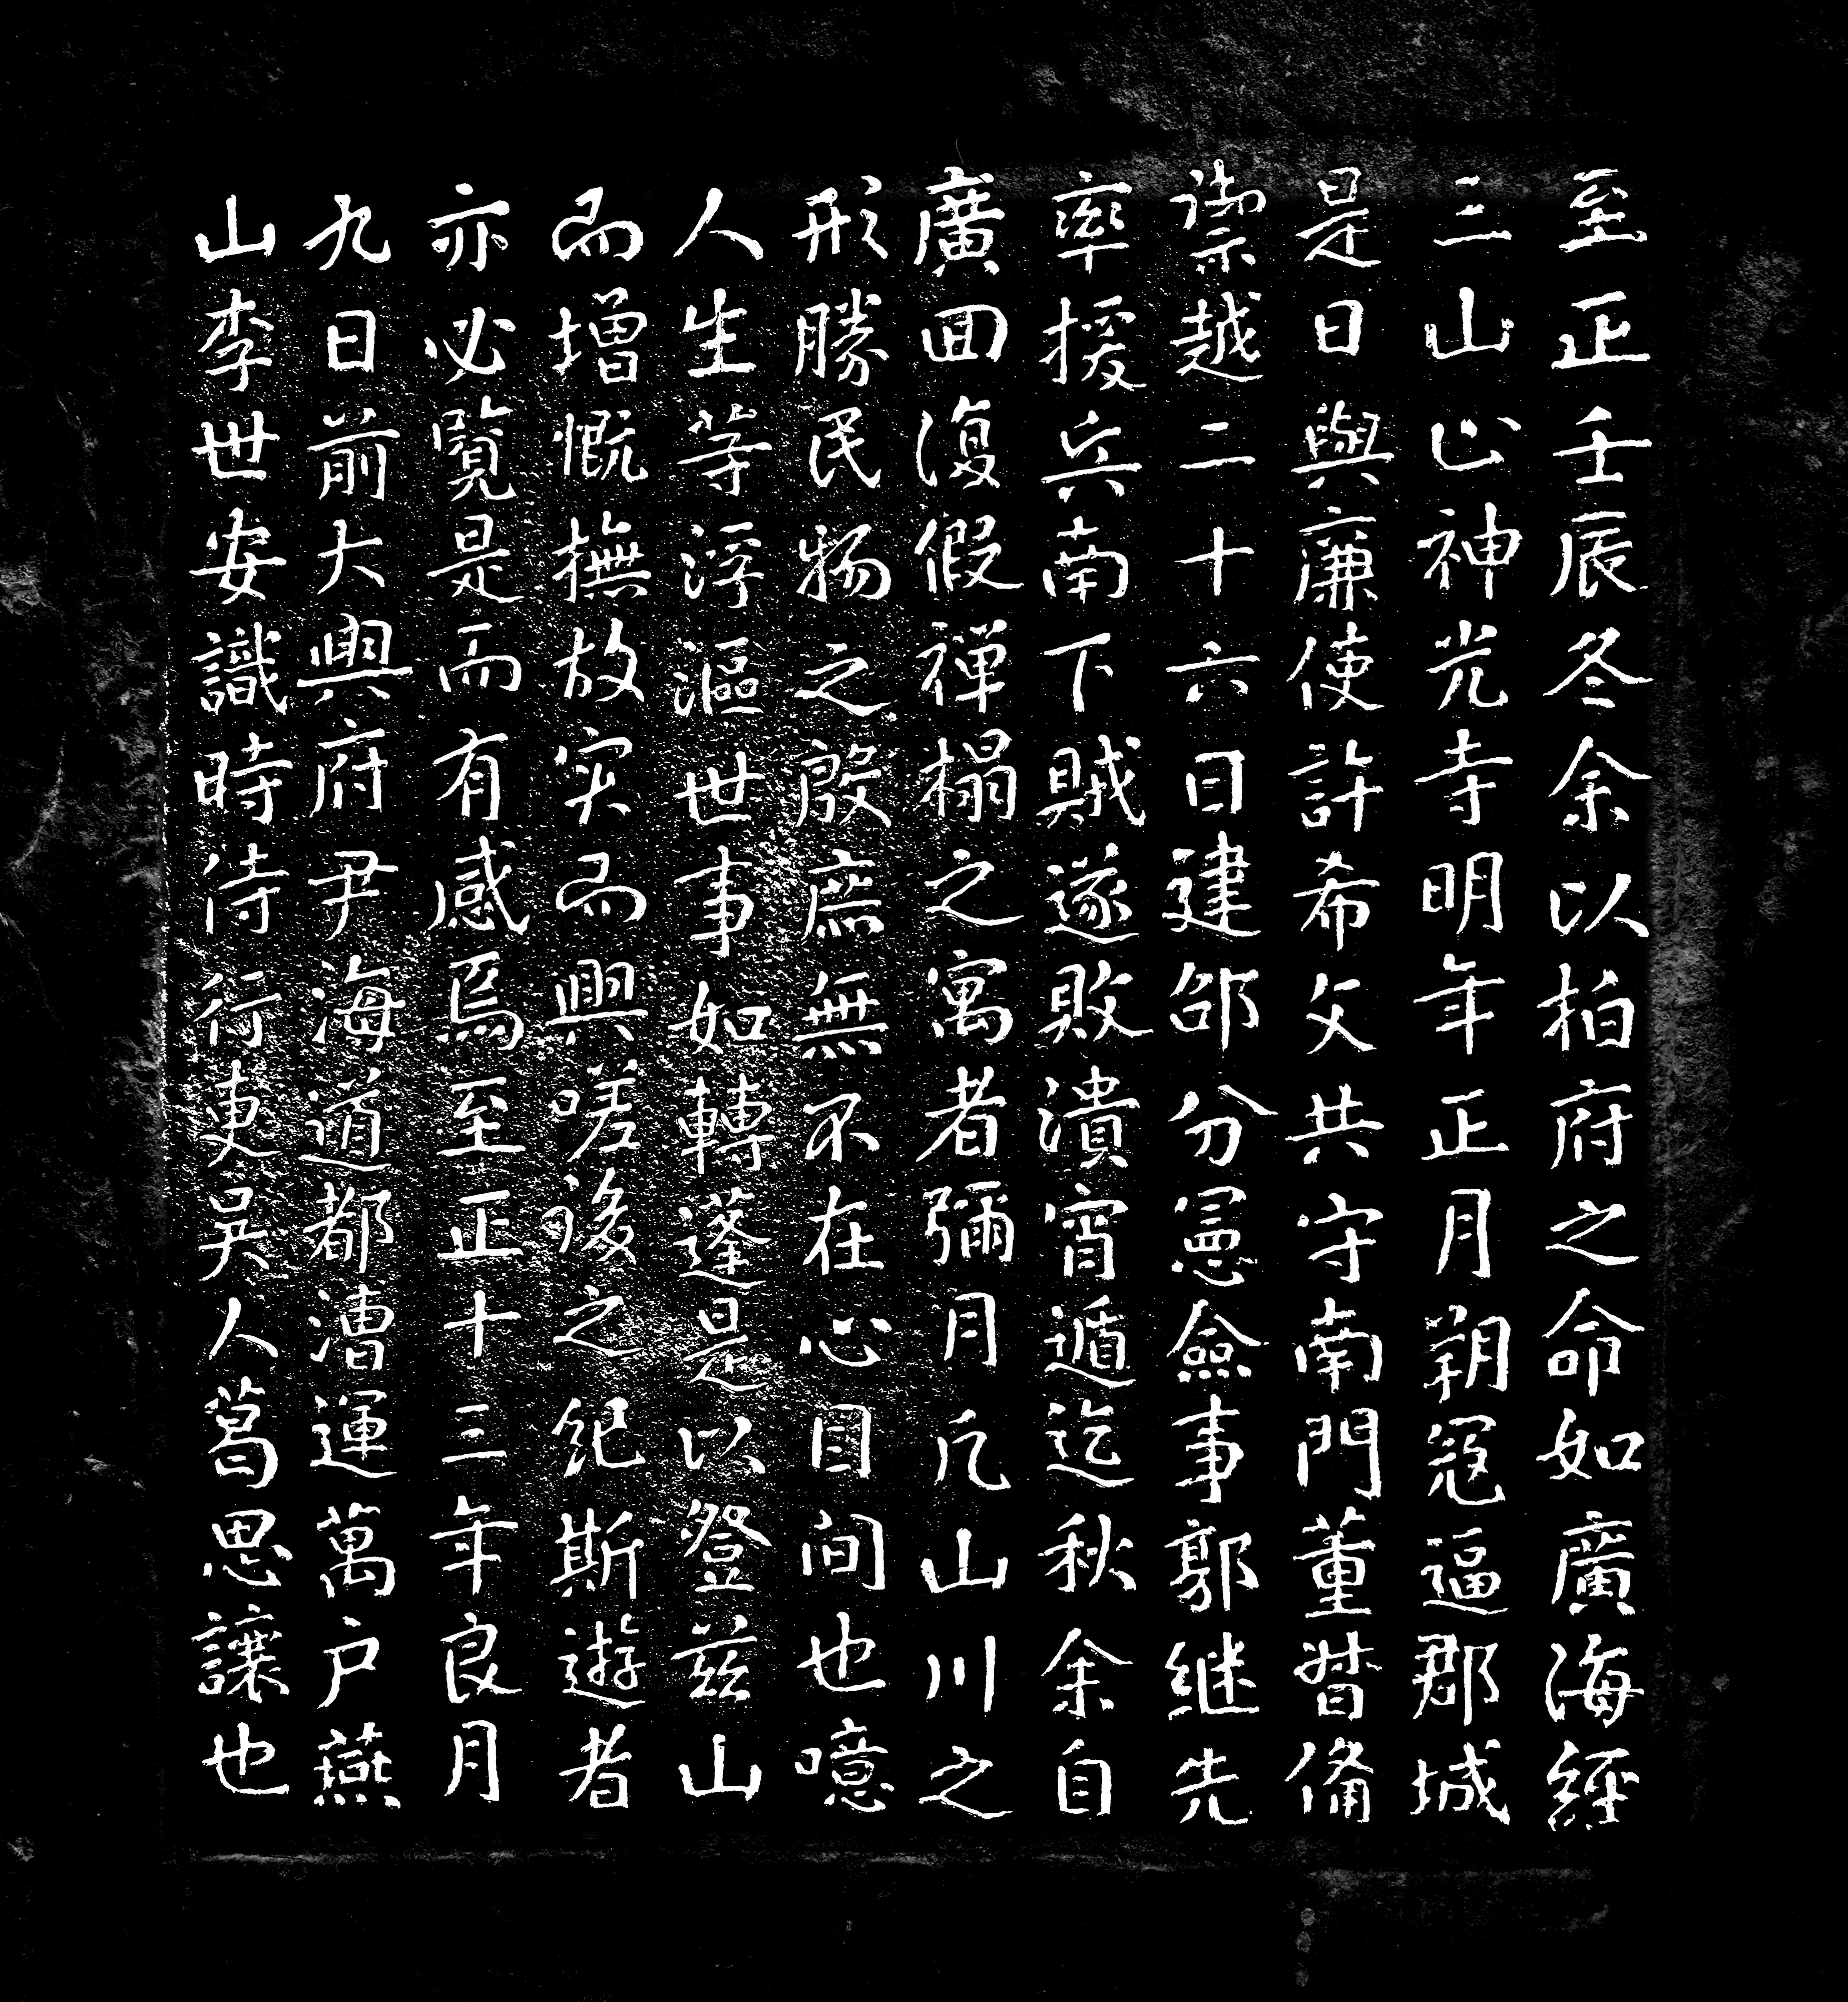 至正壬辰冬余以柏府之命如廣海經
三山止神光寺明年正月朔冦逼郡城
是日與廉使許希文共守南門董督備
禦越二十六日建邵分憲僉事郭継先
率援兵南下賊遂敗潰宵遁迄秋余自
廣回復假禅榻之寓者彌月凢山川之
形勝民物之殷庶無不在心目间也噫
人生等浮漚世事如轉蓬是以登兹山
而增慨撫故实而興嗟後之紀斯遊者
亦必覧是而有感焉至正十三年良月
九日前大興府尹海道都漕運萬户燕
山李世安識時侍行吏吴人葛思讓也